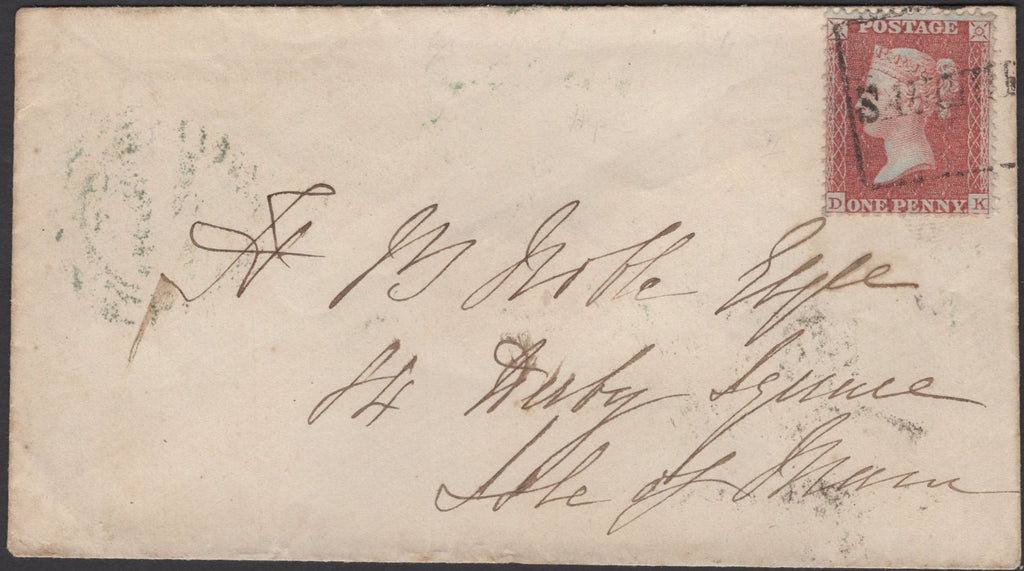 POSTAGE
D ONE PENNY. K
W Noble Esqre
14 Derby Square
Isle of Man